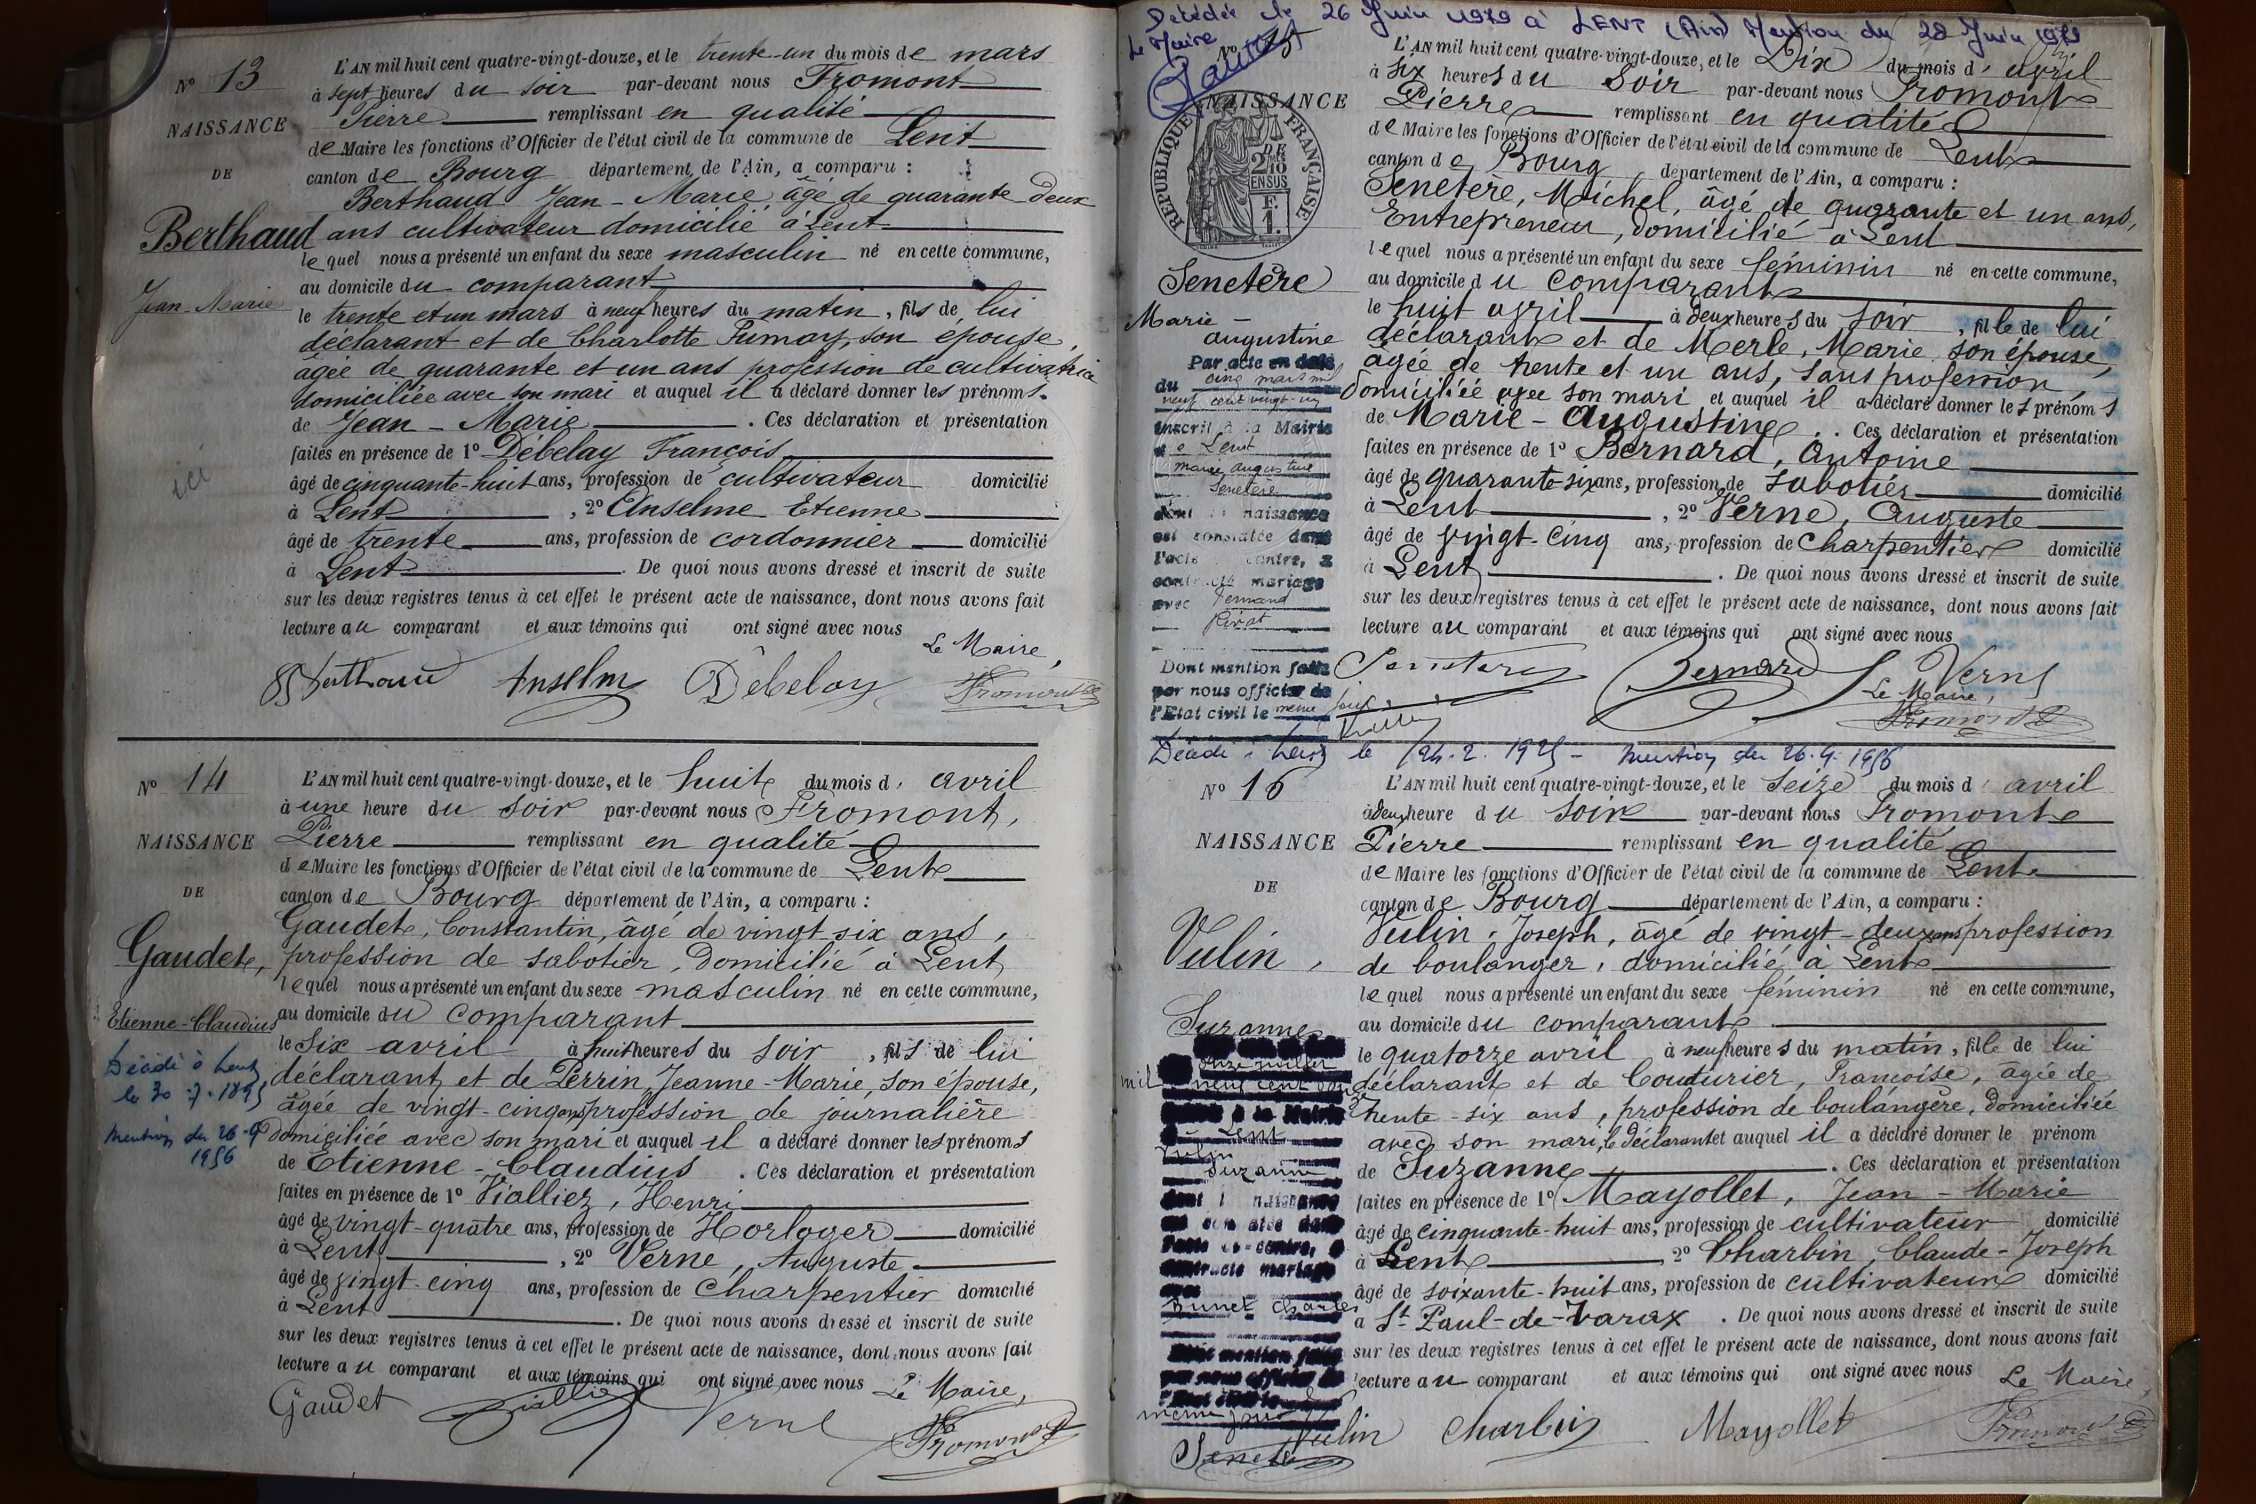 N° 13
NAISSANCE
DE
Berthaud
Jean-Marie
ici
L'AN mil huit cent quatre-vingt-douze, et le trente-un du mois de mars
à sept heures du soir par-devant nous Fromont
Pierre remplissant en qualité
de Maire les fonctions d'Officier de l'état civil de la commune de Lent
canton de Bourg département de l'Ain, a comparu :
Berthaud Jean-Marie, âgé de quarante deux
ans cultivateur domicilié à Lent
lequel nous a présenté un enfant du sexe masculin né en cette commune,
au domicile du comparant
le trente et un mars à neuf heures du matin, fils de lui
déclarant et de Charlotte Pumay, son épouse,
âgée de quarante et un ans profession de cultivatrice
domiciliée avec son mari et auquel il a déclaré donner les prénoms
de Jean-Marie . Ces déclaration et présentation
faites en présence de 1° Débelay François
âgé de cinquante-huit ans, profession de cultivateur domicilié
à Lent , 2° Anselme Etienne
âgé de trente ans, profession de cordonnier domicilié
à Lent . De quoi nous avons dressé et inscrit de suite
sur les deux registres tenus à cet effet le présent acte de naissance, dont nous avons fait
lecture au comparant et aux témoins qui ont signé avec nous
Le Maire,
Berthaud Anselm Débelay Fromont
N° 14
NAISSANCE
DE
Gaudet,
Etienne-Claudius
Décédé à Lent
le 30.7.1895
Mention du 26-9
1956
L'AN mil huit cent quatre-vingt-douze, et le huit du mois d'avril
à une heure du soir par-devant nous Fromont,
Pierre remplissant en qualité
de Maire les fonctions d'Officier de l'état civil de la commune de Lent
canton de Bourg département de l'Ain, a comparu :
Gaudet, Constantin, âgé de vingt-six ans,
profession de sabotier, domicilié à Lent
lequel nous a présenté un enfant du sexe masculin né en cette commune,
au domicile du comparant
le six avril à huit heures du soir, fils de lui
déclarant et de Perrin, Jeanne-Marie, son épouse,
âgée de vingt-cinq ans profession de journalière
domiciliée avec son mari et auquel il a déclaré donner les prénoms
de Etienne-Claudius . Ces déclaration et présentation
faites en présence de 1° Vialliez, Henri
âgé de vingt-quatre ans, profession de Horloger domicilié
à Lent , 2° Verne, Auguste
âgé de vingt-cinq ans, profession de Charpentier domicilié
à Lent . De quoi nous avons dressé et inscrit de suite
sur les deux registres tenus à cet effet le présent acte de naissance, dont nous avons fait
lecture au comparant et aux témoins qui ont signé avec nous Le Maire,
Gaudet Verne Fromont
Décédée le 26 Juin 1979 à LENT (Ain) Mention du 28 Juin 1979
Le Maire
N° 15
NAISSANCE
REPUBLIQUE FRANÇAISE
2/10 EN SUS
F. 1.
Senetère
Marie-
augustine
Par acte en date
du cinq mars mil
neuf cent vingt-un
inscrit à la Mairie
de Lent
marie augustine
Senetère
dont la naissance
est constatée dans
l'acte ci-contre, a
contracté mariage
avec Fernand
Pirat
Dont mention faite
par nous officier de
l'Etat civil le même jour
L'AN mil huit cent quatre-vingt-douze, et le Dix du mois d'avril
à six heures du soir par-devant nous Fromont
Pierre remplissant en qualité
de Maire les fonctions d'Officier de l'état civil de la commune de Lent
canton de Bourg département de l'Ain, a comparu :
Senetère, Michel, âgé de quarante et un ans,
Entrepreneur, domicilié à Lent
lequel nous a présenté un enfant du sexe féminin né en cette commune,
au domicile du comparant
le huit avril à deux heures du soir, fille de lui
déclarant et de Merle, Marie son épouse,
âgée de trente et un ans, sans profession
domiciliée avec son mari et auquel il a déclaré donner les prénoms
de Marie-Augustine . Ces déclaration et présentation
faites en présence de 1° Bernard, Antoine
âgé de quarante-six ans, profession de sabotier domicilié
à Lent , 2° Verne, Auguste
âgé de vingt-cinq ans, profession de Charpentier domicilié
à Lent . De quoi nous avons dressé et inscrit de suite
sur les deux registres tenus à cet effet le présent acte de naissance, dont nous avons fait
lecture au comparant et aux témoins qui ont signé avec nous
Senetère Bernard Verne
Le Maire,
Fromont
Décédé à Lent le 24.2.1925 - Mention du 26.9.1956
N° 16
NAISSANCE
DE
Vulin,
Suzanne
onze juillet
mil neuf cent
à la Mairie
Lent
Vulin
Suzanne
dont la naissance
est constatée dans
l'acte ci-contre, a
contracté mariage
avec
Brunet Charles
Dont mention faite
par nous officier de
l'Etat civil le
même jour
L'AN mil huit cent quatre-vingt-douze, et le seize du mois d'avril
à deux heure du soir par-devant nous Fromont
Pierre remplissant en qualité
de Maire les fonctions d'Officier de l'état civil de la commune de Lent
canton de Bourg département de l'Ain, a comparu :
Vulin, Joseph, âgé de vingt-deux ans profession
de boulanger, domicilié à Lent
lequel nous a présenté un enfant du sexe féminin né en cette commune,
au domicile du comparant
le quatorze avril à neuf heures du matin, fille de lui
déclarant et de Couturier, Françoise, âgée de
trente-six ans, profession de boulangère, domiciliée
avec son mari, le déclarant et auquel il a déclaré donner le prénom
de Suzanne . Ces déclaration et présentation
faites en présence de 1° Mayollet, Jean-Marie
âgé de cinquante-huit ans, profession de cultivateur domicilié
à Lent 2° Charbin, Claude-Joseph
âgé de soixante-huit ans, profession de cultivateur domicilié
à St Paul-de-Varax . De quoi nous avons dressé et inscrit de suite
sur les deux registres tenus à cet effet le présent acte de naissance, dont nous avons fait
lecture au comparant et aux témoins qui ont signé avec nous Le Maire,
Vulin Charbin Mayollet Fromont
Senetère